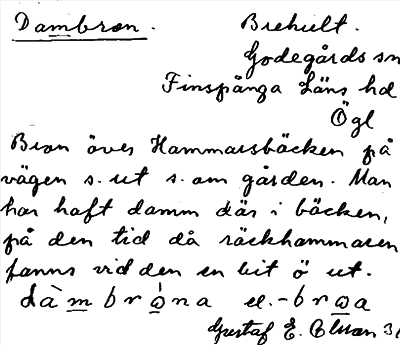 Dambron. Brehult.
Godegårds sn
Finspånga Läns hd
Ögl
Bron över Hammarsbäcken på
vägen s. ut s. om gården. Man
har haft damm där i bäcken,
på den tid då räckhammaren
fanns vid den en bit ö ut.
dàmbròna el. -broa
Gustaf E. Olsson 31